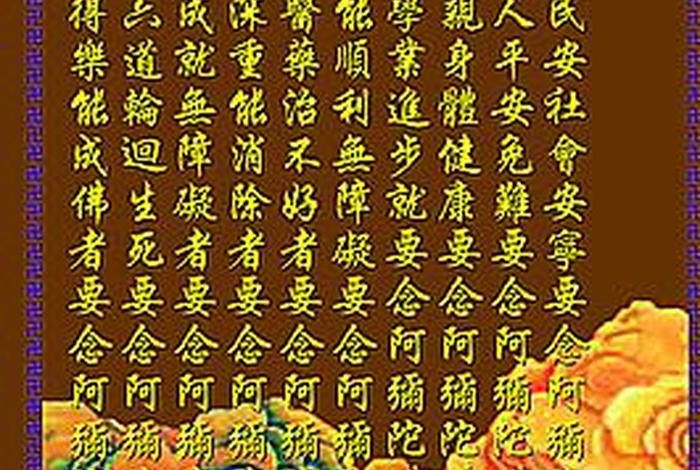 民安社會安寧要念阿彌
人平安免難要念阿彌陀
親身體健康要念阿彌陀
學業進步就要念阿彌陀
能順利無障礙要念阿彌
醫藥治不好者要念阿彌
深重能消除者要念阿彌
成就無障礙者要念阿彌
六道輪迴生死要念阿彌
得樂能成佛者要念阿彌